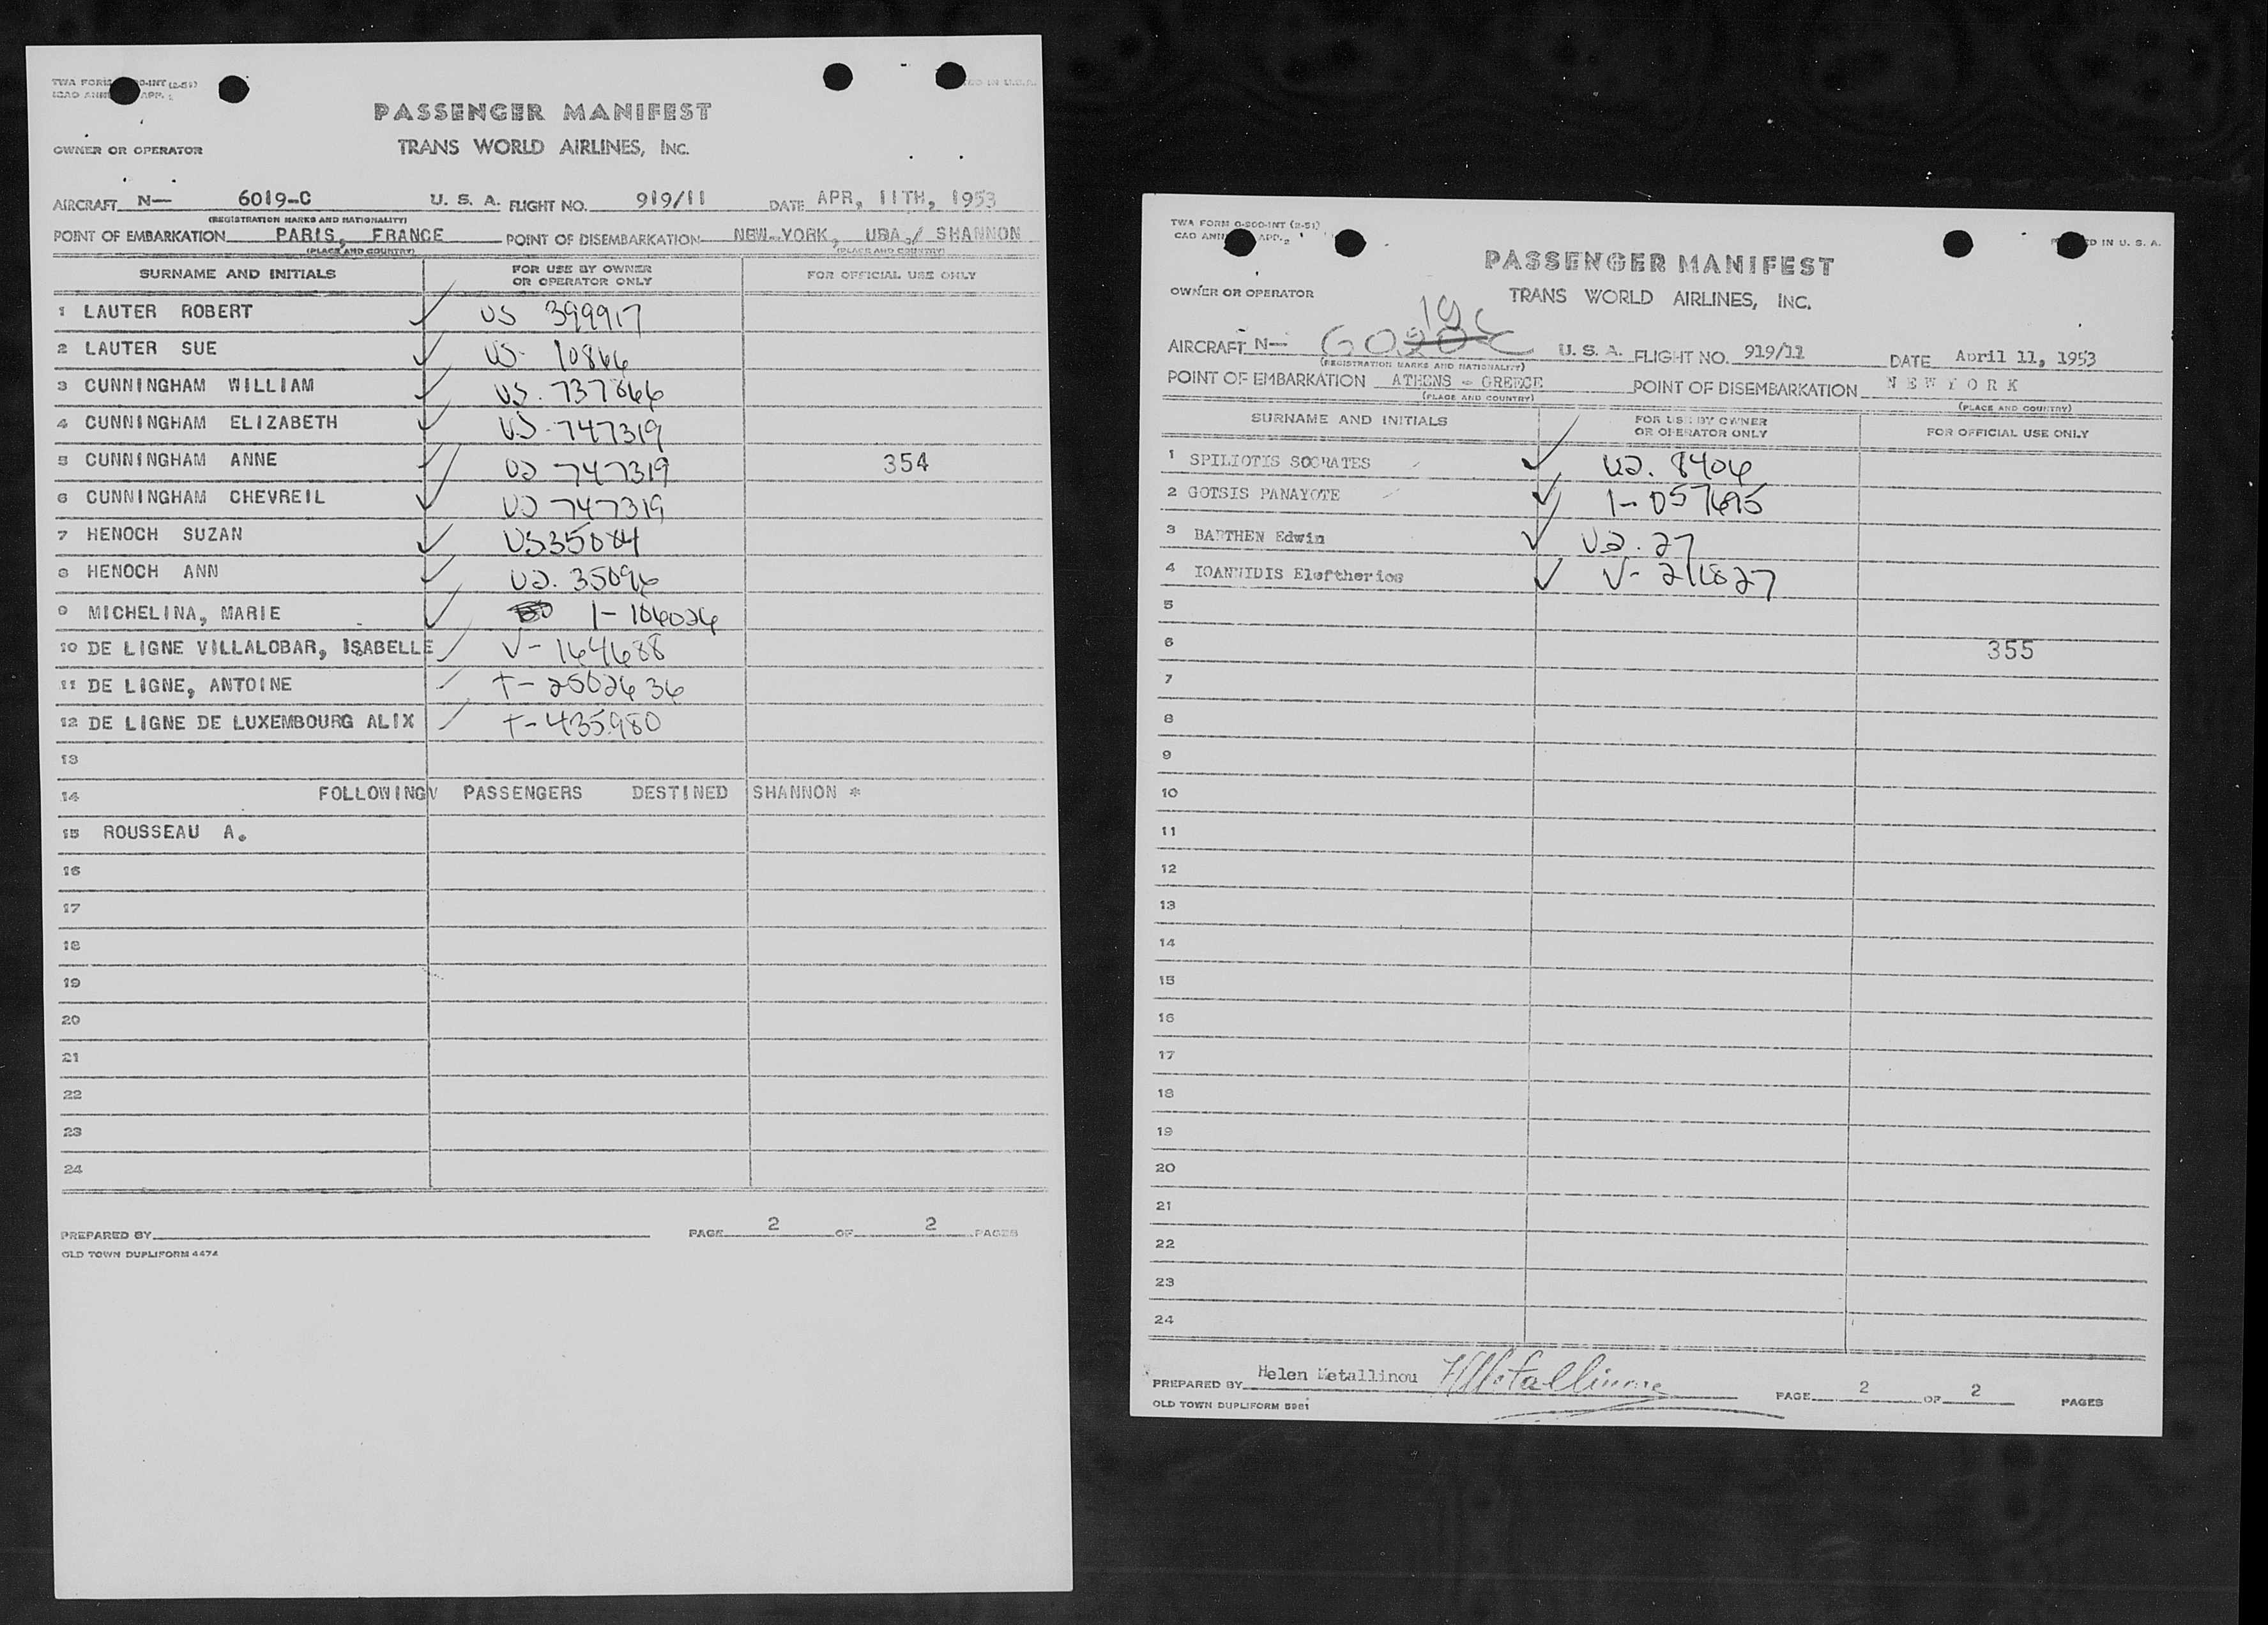 PASSENGER MANIFEST
OWNER OR OPERATOR
TRANS WORLD AIRLINES, INC.
AIRCRAFT N— 6019-C U. S. A. FLIGHT NO. 919/11 DATE APR, 11TH, 1953
(REGISTRATION MARKS AND NATIONALITY)
POINT OF EMBARKATION PARIS, FRANCE POINT OF DISEMBARKATION NEW YORK, USA./ SHANNON
(PLACE AND COUNTRY) (PLACE AND COUNTRY)
SURNAME AND INITIALS FOR USE BY OWNER OR OPERATOR ONLY FOR OFFICIAL USE ONLY
1 LAUTER ROBERT US 399917
2 LAUTER SUE US- 10866
3 CUNNINGHAM WILLIAM US. 737866
4 CUNNINGHAM ELIZABETH US-747319
5 CUNNINGHAM ANNE US 747319 354
6 CUNNINGHAM CHEVREIL US 747319
7 HENOCH SUZAN US35084
8 HENOCH ANN US. 35096
9 MICHELINA, MARIE I-106026
10 DE LIGNE VILLALOBAR, ISABELLE V-164688
11 DE LIGNE, ANTOINE T-2502636
12 DE LIGNE DE LUXEMBOURG ALIX T-435980
13
14 FOLLOWINGV PASSENGERS DESTINED SHANNON *
15 ROUSSEAU A.
16
17
18
19
20
21
22
23
24
PREPARED BY PAGE 2 OF 2 PAGES
OLD TOWN DUPLIFORM 4474
TWA FORM O-200-INT (2-51)
PASSENGER MANIFEST
OWNER OR OPERATOR
TRANS WORLD AIRLINES, INC.
19C
AIRCRAFT N— 6020C U. S. A. FLIGHT NO. 919/11 DATE April 11, 1953
(REGISTRATION MARKS AND NATIONALITY)
POINT OF EMBARKATION ATHENS - GREECE POINT OF DISEMBARKATION NEW YORK
(PLACE AND COUNTRY) (PLACE AND COUNTRY)
SURNAME AND INITIALS FOR USE BY OWNER OR OPERATOR ONLY FOR OFFICIAL USE ONLY
1 SPILIOTIS SOCRATES US. 8406
2 GOTSIS PANAYOTE I-057695
3 BARTHEN Edwin US. 27
4 IOANNIDIS Eleftherios V- 211827
5
6 355
7
8
9
10
11
12
13
14
15
16
17
18
19
20
21
22
23
24
PREPARED BY Helen Metallinou HMetallinou PAGE 2 OF 2 PAGES
OLD TOWN DUPLIFORM 5981